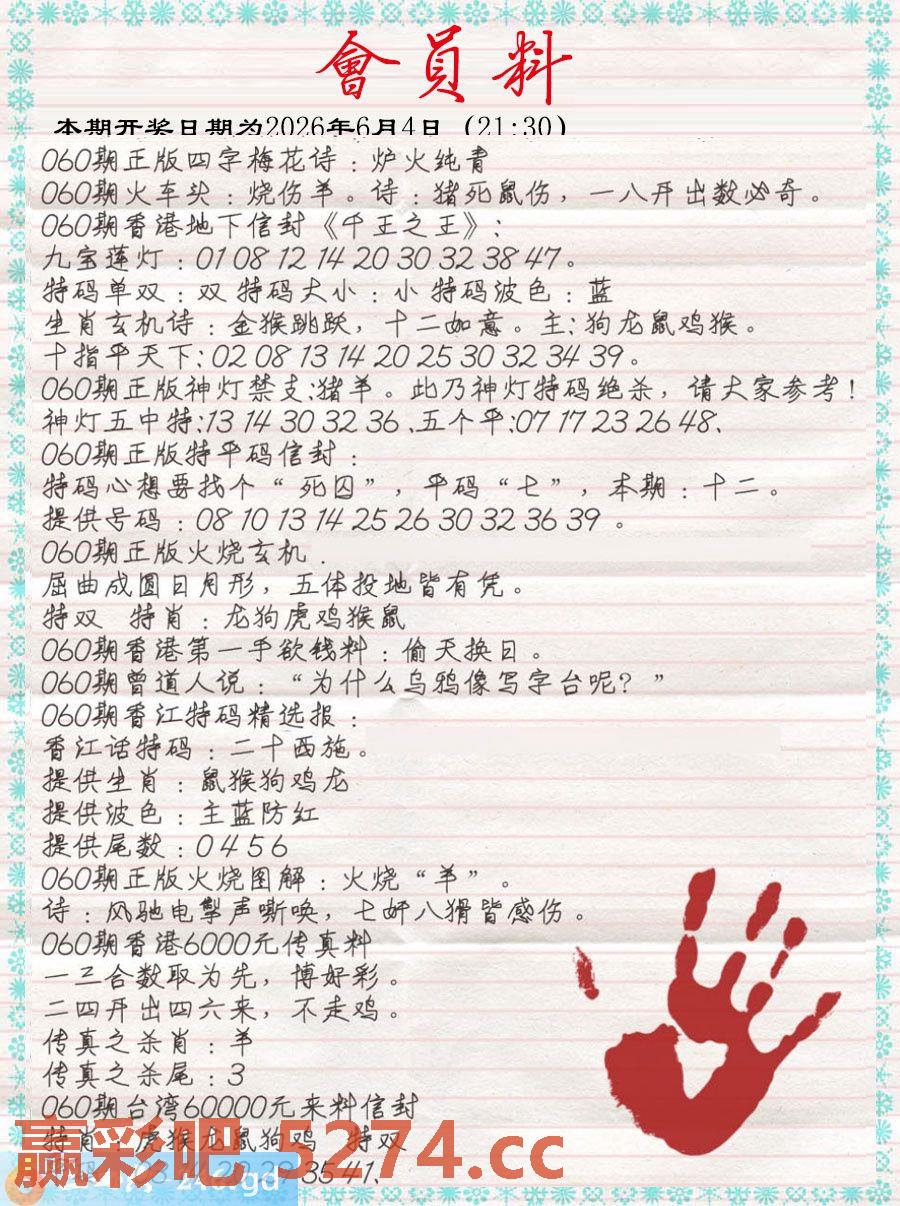 會員料
本期开奖日期为2026年6月4日（21:30）
060期正版四字梅花诗：炉火纯青
060期火车头：烧伤羊。诗：猪死鼠伤，一八开出数必奇。
060期香港地下信封《千王之王》：
九宝莲灯：01 08 12 14 20 30 32 38 47。
特码单双：双 特码大小：小 特码波色：蓝
生肖玄机诗：金猴跳跃，十二如意。主：狗龙鼠鸡猴。
十指平天下：02 08 13 14 20 25 30 32 34 39。
060期正版神灯禁支：猪羊。此乃神灯特码绝杀，请大家参考！
神灯五中特：13 14 30 32 36、五个平：07 17 23 26 48、
060期正版特平码信封：
特码心想要找个“死囚”，平码“七”，本期：十二。
提供号码：08 10 13 14 25 26 30 32 36 39 。
060期正版火烧玄机．
屈曲成圆日月形，五体投地皆有凭。
特双 特肖：龙狗虎鸡猴鼠
060期香港第一手欲钱料：偷天换日。
060期曾道人说：“为什么乌鸦像写字台呢？”
060期香江特码精选报：
香江话特码：二十西施。
提供生肖：鼠猴狗鸡龙
提供波色：主蓝防红
提供尾数：0 4 5 6
060期正版火烧图解：火烧“羊”。
诗：风驰电掣声嘶唤，七奸八猾皆感伤。
060期香港6000元传真料
一三合数取为先，博好彩。
二四开出四六来，不走鸡。
传真之杀肖：羊
传真之杀尾：3
060期台湾60000元来料信封
特肖：虎猴龙鼠狗鸡 特双
赢彩吧.5274.cc
35 41、